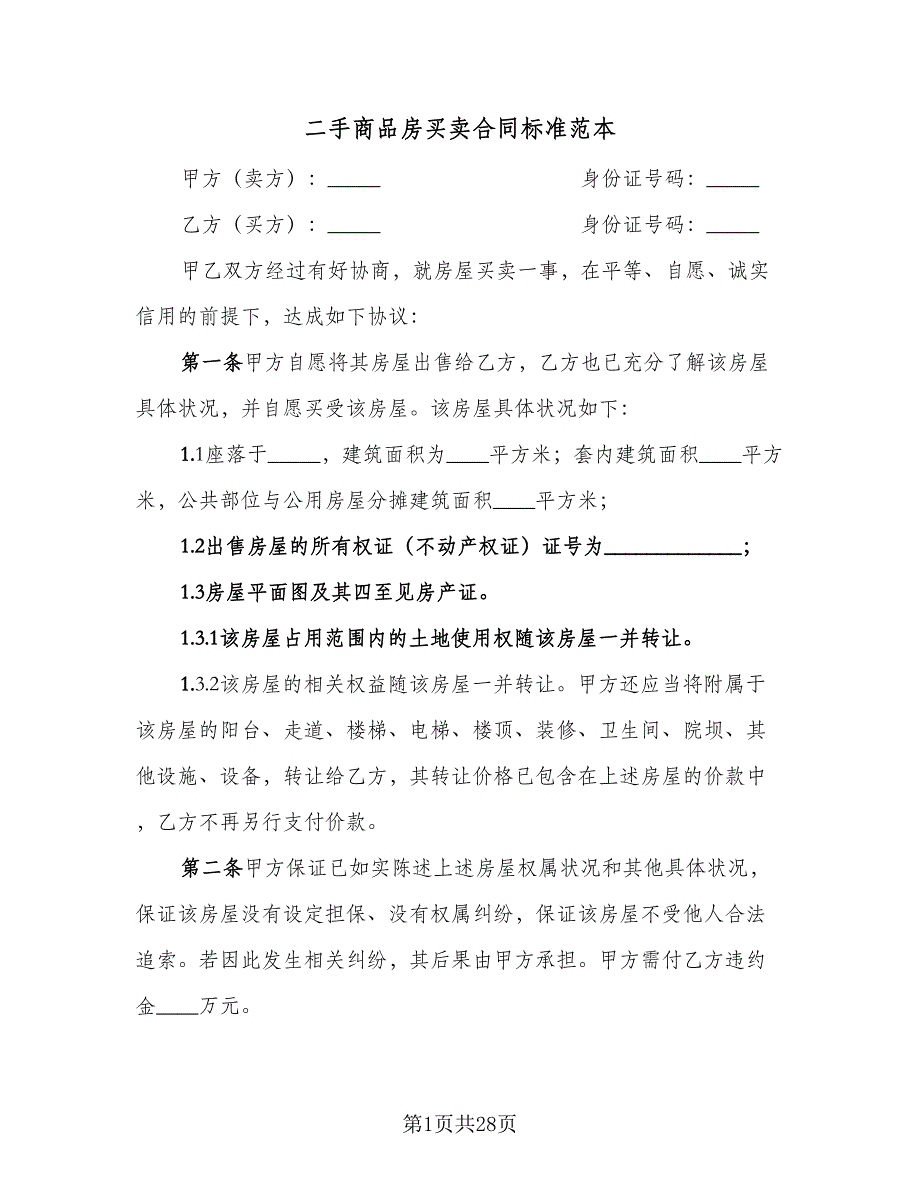 二手商品房买卖合同标准范本
甲方（卖方）：_____ 身份证号码：_____
乙方（买方）：_____ 身份证号码：_____
甲乙双方经过有好协商，就房屋买卖一事，在平等、自愿、诚实
信用的前提下，达成如下协议：
第一条甲方自愿将其房屋出售给乙方，乙方也已充分了解该房屋
具体状况，并自愿买受该房屋。该房屋具体状况如下：
1.1座落于_____，建筑面积为____平方米；套内建筑面积____平方
米，公共部位与公用房屋分摊建筑面积____平方米；
1.2出售房屋的所有权证（不动产权证）证号为_____________；
1.3房屋平面图及其四至见房产证。
1.3.1该房屋占用范围内的土地使用权随该房屋一并转让。
1.3.2该房屋的相关权益随该房屋一并转让。甲方还应当将附属于
该房屋的阳台、走道、楼梯、电梯、楼顶、装修、卫生间、院坝、其
他设施、设备，转让给乙方，其转让价格已包含在上述房屋的价款中
，乙方不再另行支付价款。
第二条甲方保证已如实陈述上述房屋权属状况和其他具体状况，
保证该房屋没有设定担保、没有权属纠纷，保证该房屋不受他人合法
追索。若因此发生相关纠纷，其后果由甲方承担。甲方需付乙方违约
金____万元。
第1页共28页